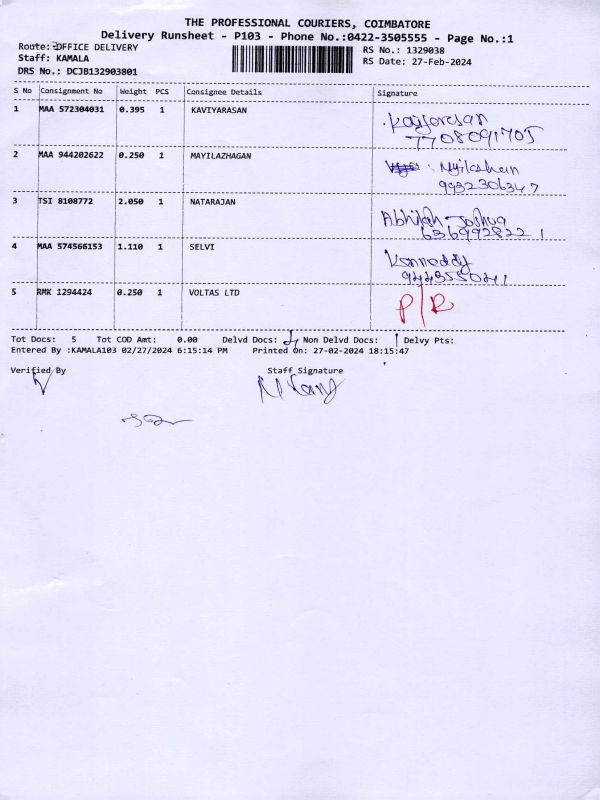 THE PROFESSIONAL COURIERS, COIMBATORE
Delivery Runsheet - P103 - Phone No.:0422-3505555 - Page No.:1
Route: OFFICE DELIVERY
Staff: KAMALA
DRS No.: DCJB132903801
RS No.: 1329038
RS Date: 27-Feb-2024
S No Consignment No Weight PCS Consignee Details Signature
1 MAA 572304031 0.395 1 KAVIYARASAN
7708091705
2 MAA 944202622 0.250 1 MAYILAZHAGAN
9932306347
3 TSI 8108772 2.050 1 NATARAJAN Abhilash Joshua
6369928221
4 MAA 574566153 1.110 1 SELVI Kennoddy
5 RMK 1294424 0.250 1 VOLTAS LTD P/R
Tot Docs: 5 Tot COD Amt: 0.00 Delvd Docs: 4 Non Delvd Docs: 1 Delvy Pts:
Entered By :KAMALA103 02/27/2024 6:15:14 PM Printed On: 27-02-2024 18:15:47
Verified By Staff Signature